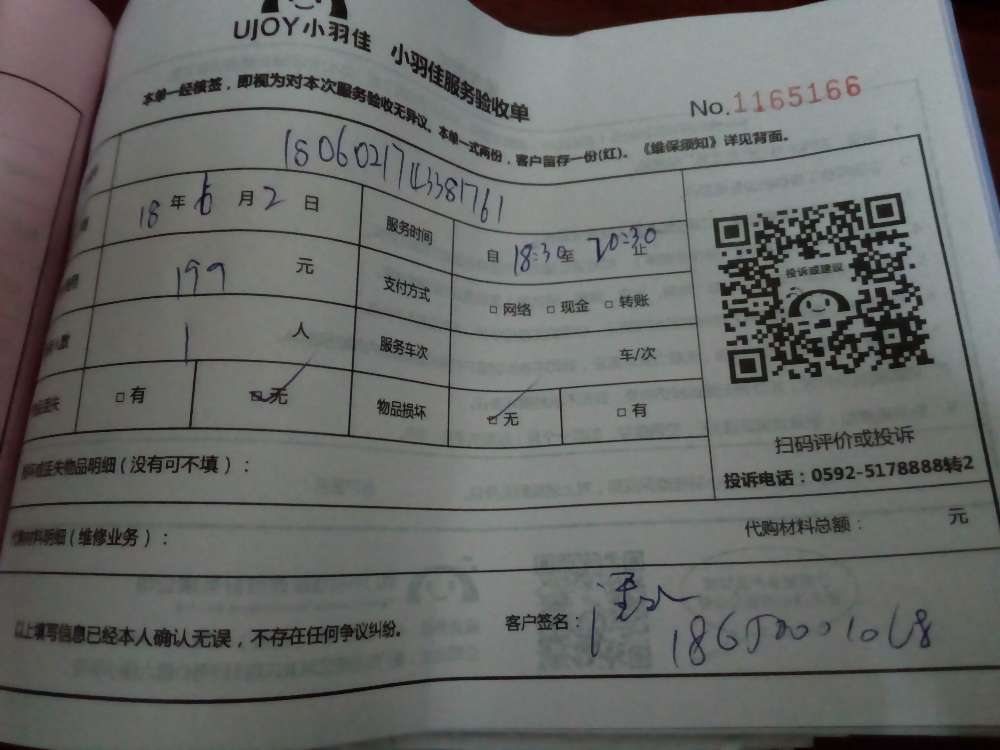 UJOY小羽佳 小羽佳服务验收单
No.1165166
本单一经核签，即视为对本次服务验收无异议。本单一式两份，客户留存一份(红)。《维保须知》详见背面。
1806021743381761
18 年 6 月 2 日 服务时间 自 18:30 至 20:30 止
199 元 支付方式 □ 网络 □ 现金 □ 转账
1 人 服务车次 车/次
□ 有 □ 无 物品损坏 □ 无 □ 有
投诉或建议
扫码评价或投诉
投诉电话：0592-5178888转2
丢失物品明细（没有可不填）：
代购材料明细（维修业务）： 代购材料总额： 元
以上填写信息已经本人确认无误，不存在任何争议纠纷。 客户签名：